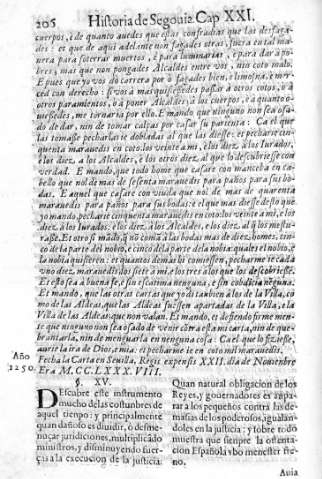 206 Historia de Segovia. Cap XXI.
cuerpos, è de quanto auedes que estas confradias que las desfagades: et que de aqui adelante non fagades otras, fuera en tal manera para soterrar muertos, è para luminarias, e para dar à pobres, mas que non pongades Alcaldes entre vos, nin coto malo.
E pues que yo vos dò carrera por ò fagades bien, e limosna, è merced con derecho: si vos à mas
paramientos, ò à poner Alcaldes; à los cuerpos, è à quanto
me tornaria por ello. E mando que ninguno non sea osado de dar, nin de tomar calças por casar su parienta: Ca el que las tomasse pecharlas ie dobladas al que las diesse: et pecharie cinquenta marauedis en coto: los veinte à mi, è los diez à los Iurados,
è los diez, a los Alcaldes, è los otros diez, al que lo descubriesse con
verdad. E mando, que todo home que casare con manceba en cabello que nol de mas de sesenta marauedis para paños para sus bodas. E aquel que casare con viuda que nol de mas de quarenta
marauedis para paños para sus bodas: è el que mas diesse desto que
yo mando, pecharie cinquenta marauedis en coto: los veinte à mi, e
los diez à los Iurados, è los diez, à los Alcaldes, e los diez, al que lo
Et otro si mado, q̃ no comã à las bodas mas de diez homes; cinco de la parte del nobio, è cinco de la parte de la nobia: quales el nobio, è
la nobia quisieren: et quantos demas
Et esto sea à buena fe, è sin escatima ninguna, è sin cobdicia ninguna.
Et mando, que las otras cartas que yo di tambien à los de la Villa, como de las Aldeas, que las Aldeas fuessen apartadas de la Villa, è la
Villa de las Aldeas que non valan. Et mando, et defiendo firmemente que ninguno non sea osado de venir contra esta mi carta, nin de quebrantarla, nin de menguarla en ninguna cosa: Ca el que lo fiziesse,
aurie la ira de Dios, è mia: et pecharme ie en coto mil marauedis.
Fecha la Carta en Sevilla, Regis expensis XXII. dia de Nouembre
Año
1250.
Era M.CC.LXXX.VIII.
§. XV.
DEscubre este instrumento
mucho de las costumbres de
aquel tiempo; y principalmente
quan dañoso es diuidir, ò desmenuçar jurisdiciones, multiplicãdo
ministros, y disminuyendo fuerças à la execucion de la justicia.
Quan natural obligacion de los
Reyes, y gouernadores es amparar a los pequeños contra las demasias de los poderosos, igualandoles en la justicia; y sobre todo
muestra que siempre la ostentacion Española vbo menester freno.
Auia